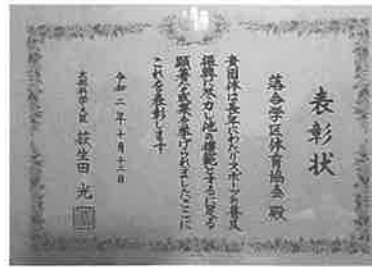 表彰状
落合学区体育協会 殿
貴団体は長年にわたりスポーツの普及
振興に尽力し他の模範とするに足る
顕著な成果を挙げられましたここに
これを表彰します
令和二年十月十二日
文部科学大臣 萩生田光一